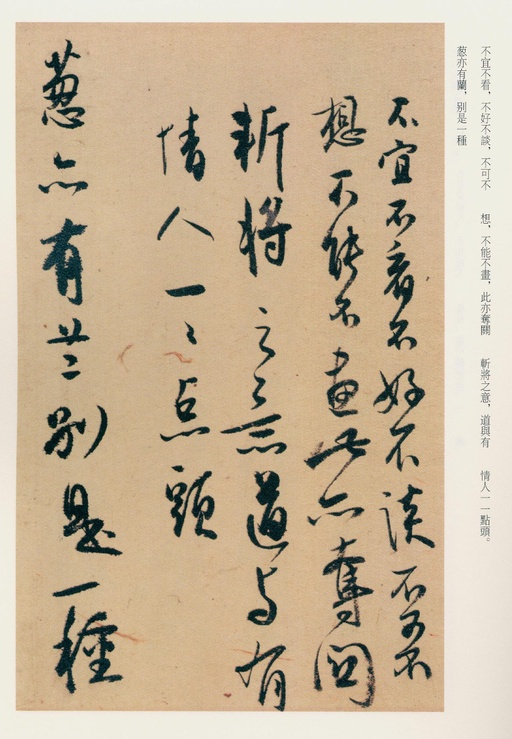 不宜不看，不好不談，不可不　想，不能不畫，此亦奪關　斬將之意，道與有　情人一一點頭。
葱亦有蘭，別是一種
不宜不看不好不談不可不
想不能不畫此亦奪関
斬將之意道与有
情人一一点頭
葱亦有兰別是一種